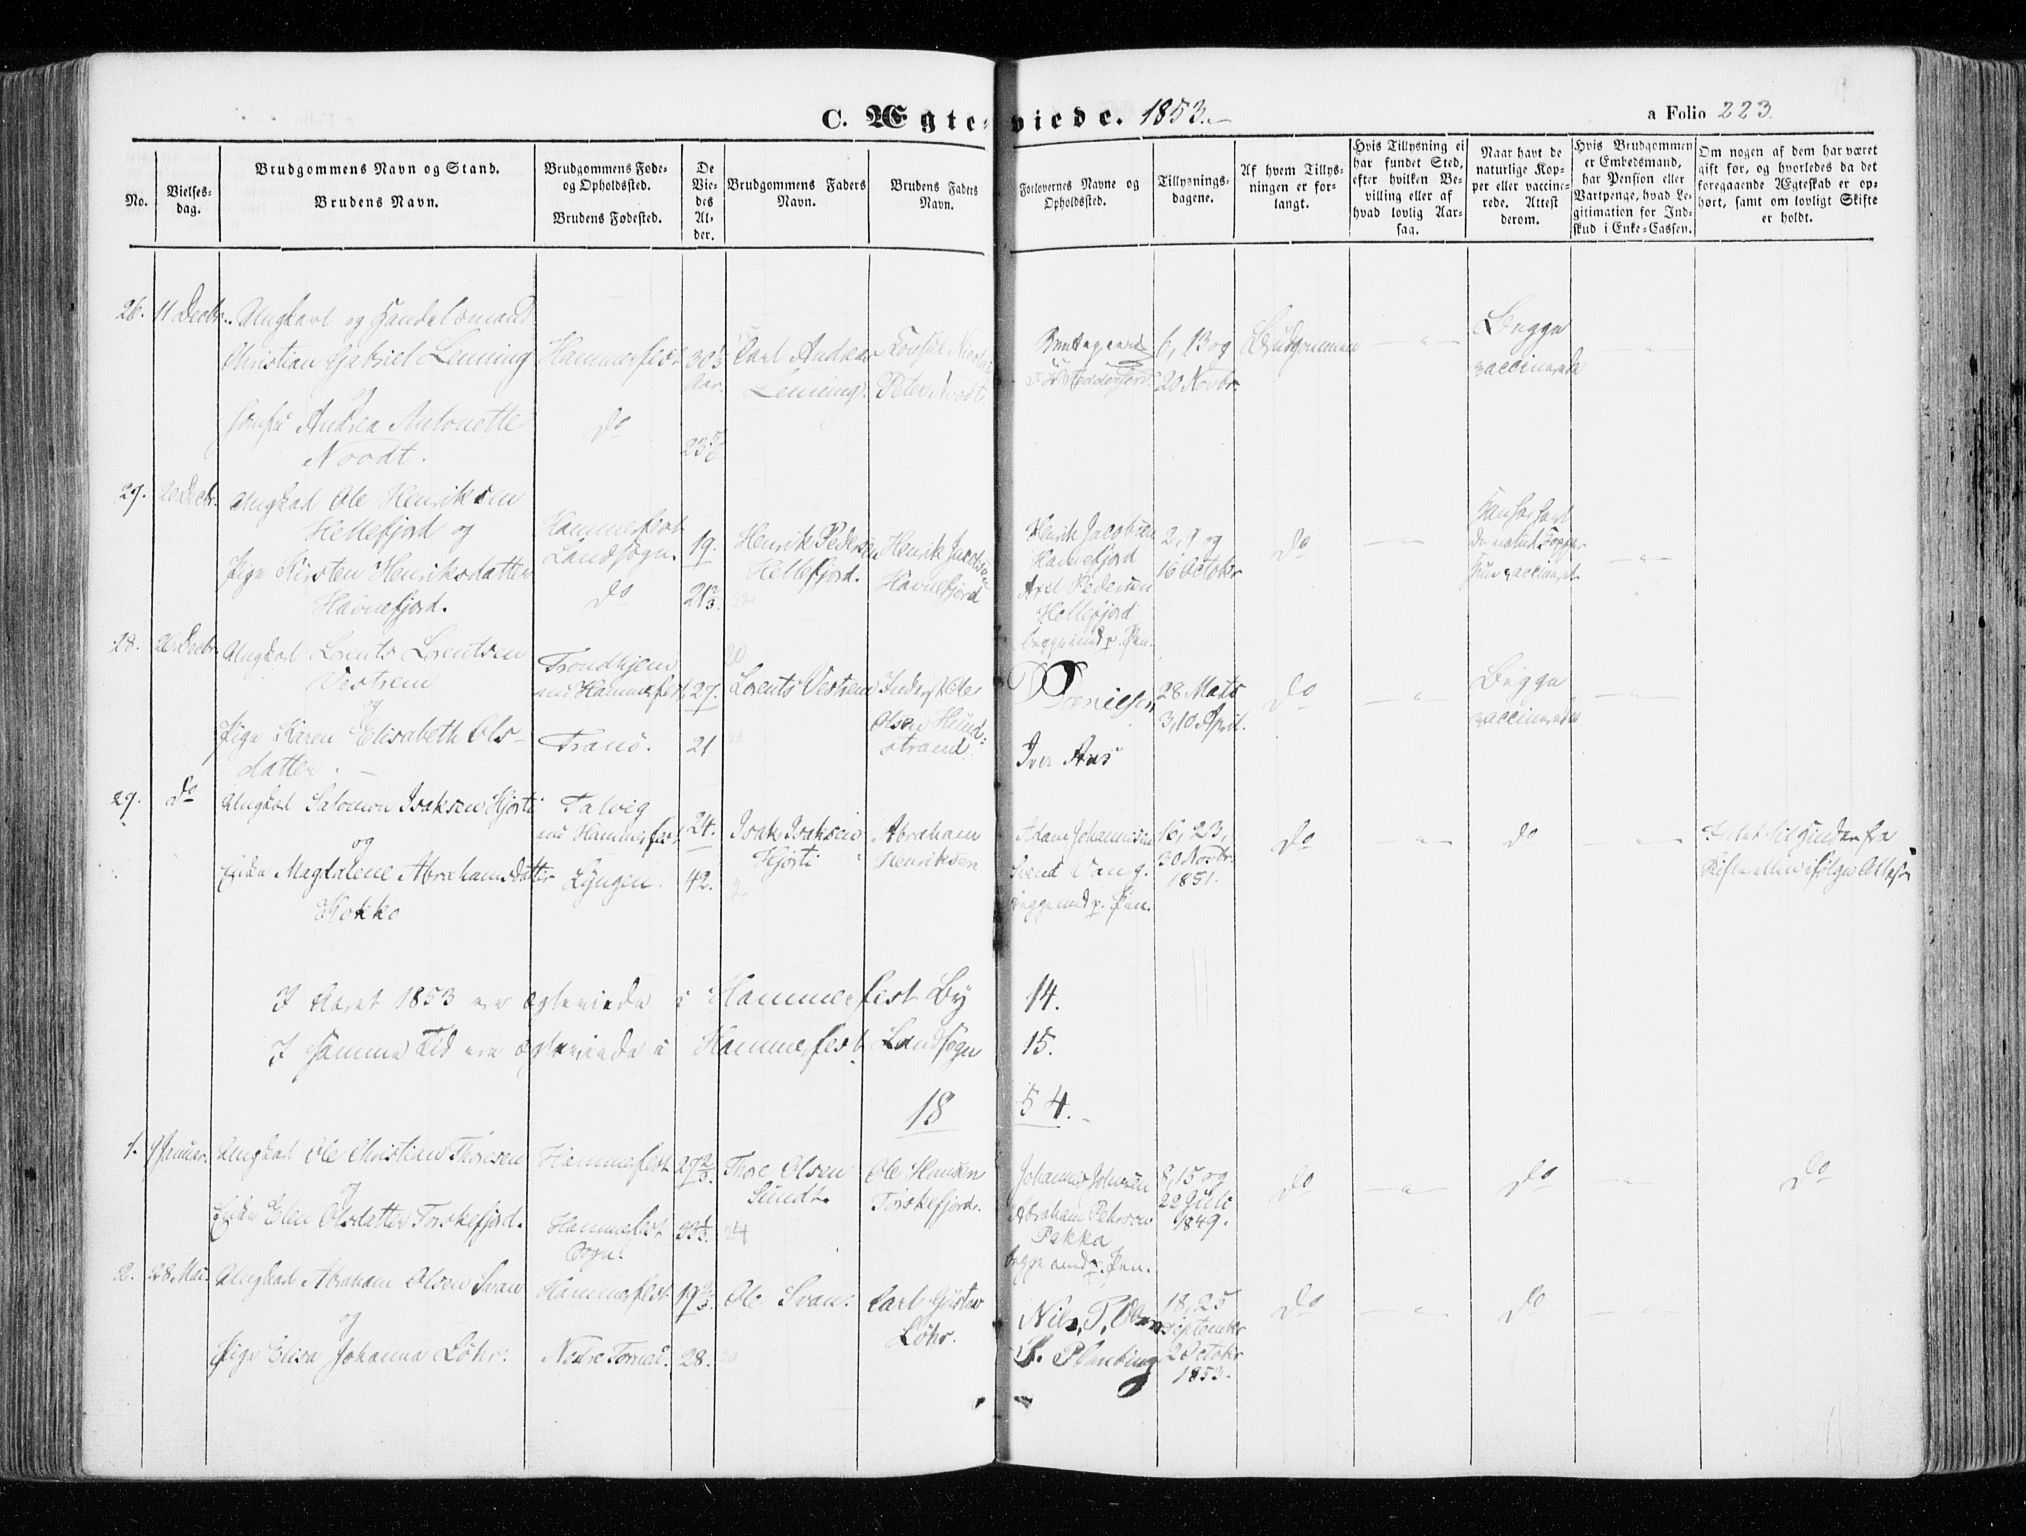 C. Ægteviede. 1853.
a Folio 223.
No.
Vielses-
dag.
Brudgommens Navn og Stand.
Brudens Navn.
Brudgommens Føde-
og Opholdssted.
Brudens Fødested.
De
Vie-
des
Al-
der.
Brudgommens Faders
Navn.
Brudens Faders
Navn.
Forlovernes Navne og
Opholdssted.
Tillysnings-
dagene.
Af hvem Tillys-
ningen er for-
langt.
Hvis Tillysning ei
har fundet Sted,
efter hvilken Be-
villing eller af
hvad lovlig Aar-
sag.
Naar havt de
naturlige Kop-
per eller vaccine-
rede. Attest
derom.
Hvis Brudgommen
er Embedsmand,
har Pension eller
Vartpenge, hvad Le-
gitimation for Ind-
skud i Enke-Cassen.
Om nogen af dem har været
gift før, og hvorledes da det
foregaaende Ægteskab er op-
hørt, samt om lovligt Skifte
er holdt.
26. 11 Decbr. Ungkarl og Handelsmand
Christian Gabriel Lening
og
Jomfru Andrea Antonette
Noodt.
Hammerfest
do
30 1/3
Aar
23 5/6
Carl Andreas
Lening.
Consul Nicolai
Peter Noodt
6, 13 og
20 Novbr.
Brudgommen
Begge
vaccinerede
27. Decbr. Ungkarl Ole Henriksen
Hellefjord og
Pige Kirsten Henriksdatter
Havnefjord.
Hammerfest
Landsogn.
do
19.
21 2/3
Henrik Pedersen
Hellefjord.
Henrik Jacobsen
Havnefjord
Henrik Jacobsen
Havnefjord
Axel Pedersen
Hellefjord
begge med p. Pen.
2, 9 og
16 October
do
Han har havt
de naturl. Kopper
Hun vaccineret
28. 26 Decbr Ungkarl Lorents Lorentsen
Vestrem
og
Pige Karen Elisabeth Ols-
datter.
Trondhjem
nu Hammerfest
Tranö.
27.
21
Lorents Vestrem
Inderst Ole
Olsen Hund-
strand.
Iver Aas
28 Marts
3, 10 April.
do
Begge
vaccinerede
29. do Ungkarl Salomon Isaksen Hjorti
og
Enke Magdalene Abrahamsdatter
Kokko
Talvig
nu Hammerfest
Lyngen.
24.
42.
Isak Isaksen
Hjorti
Abraham
Henriksen
Adam Johannesen
Svend Vang.
begge med p. Pen.
16, 23,
30 Novbr.
1851.
do
do
Intet til Hinder fra
Skifteretten ifølge Attest
I Aaret 1853 ere ægteviede i Hammerfest By 14.
I samme Tid ere ægteviede i Hammerfest Landsogn 15.
18 54.
1. Januar. Ungkarl Ole Christian Thoresen
og
Enke Elen Olsdatter Torskefjord.
Hammerfest
Hammerfest
Sogn.
27 2/3.
33 1/3.
Thore Olsen
Sundt.
Ole Hansen
Torskefjord.
Johannes Johnsen
Abraham Pehrsen
Pekka
begge med p. Pen.
8, 15 og
22 Juli
1849.
do
do
do
2. 28 Mai. Ungkarl Abraham Olsen Svan
og
Pige Elisa Johanna Löhr.
Hammerfest
Nedre Torneå.
19 2/3
28.
Ole Svan.
Carl Gustav
Löhr.
Nils P. Olsen
18, 25
September
2 October
1853.
do
do